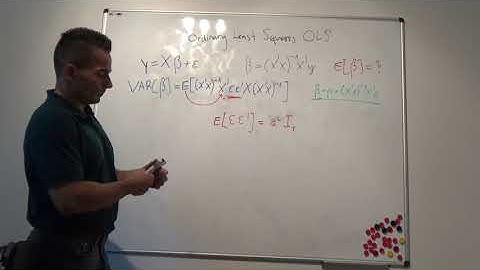 Ordinary Least Squares OLS
y = Xβ + ε β̂ = (X'X)⁻¹X'y E[β̂] = ?
VAR[β̂] = E[(X'X)⁻¹X'εε'X(X'X)⁻¹] β̂ = β + (X'X)⁻¹X'ε
E[εε'] = σ² I